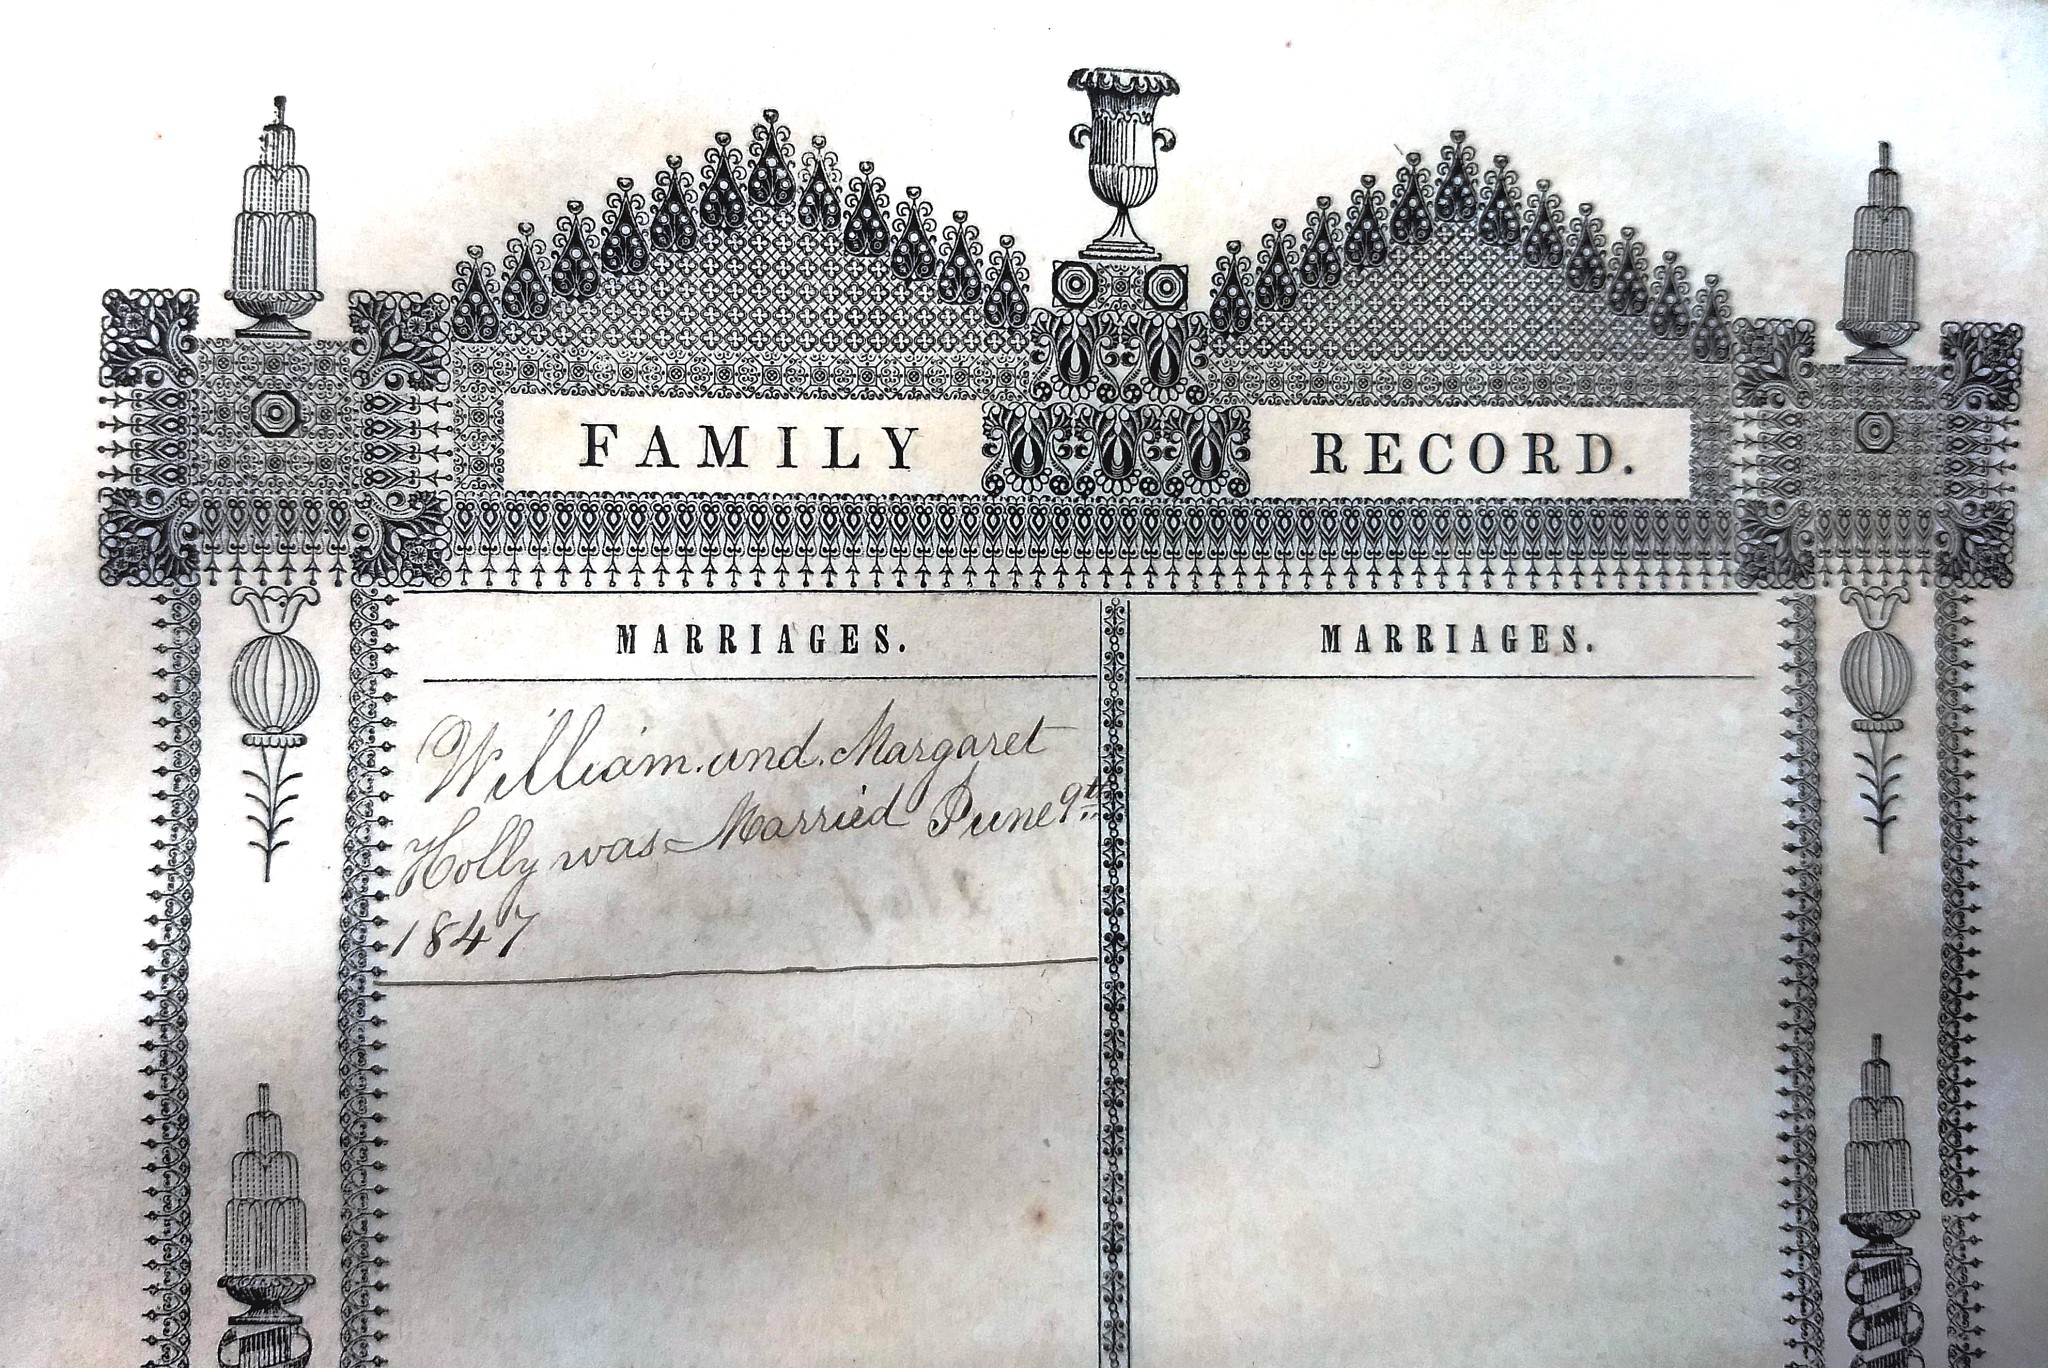 FAMILY RECORD.
MARRIAGES.
William and Margaret
Holly was Married June 9th
1847
MARRIAGES.